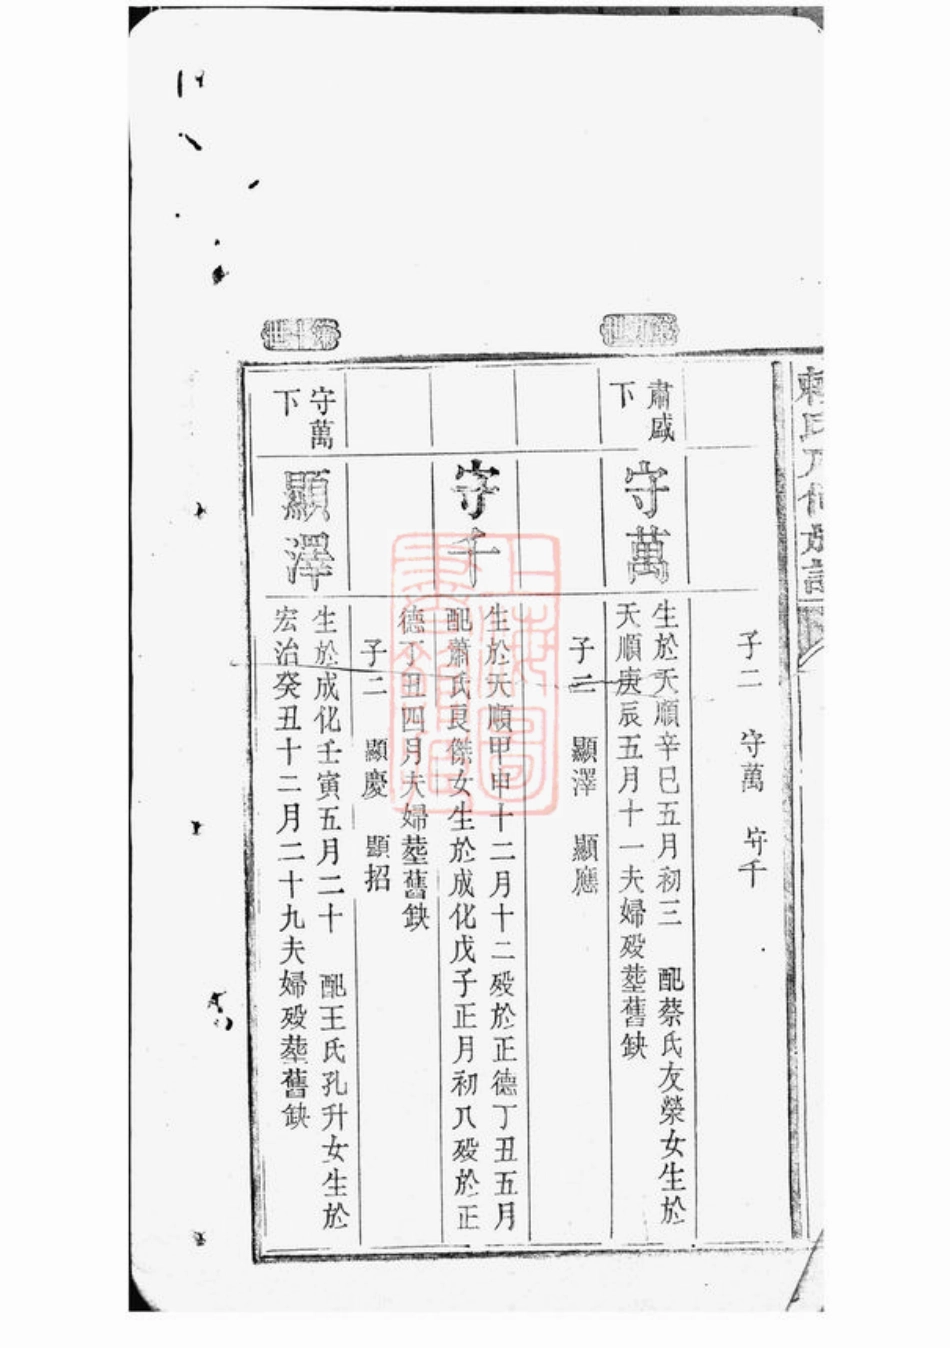 子二 守萬 守千
第九世
肅威
下
守萬
生於天順辛巳五月初三 配蔡氏友榮女生於
天順庚辰五月十一夫婦歿塟舊缺
子二 顯澤 顯應
守千
生於天順甲申十二月十二歿於正德丁丑五月
配蕭氏良傑女生於成化戊子正月初八歿於正
德丁丑四月夫婦塟舊缺
子二 顯慶 顯招
第十世
守萬
下
顯澤
生於成化壬寅五月二十 配王氏孔升女生於
宏治癸丑十二月二十九夫婦歿塟舊缺
上海圖
書館藏